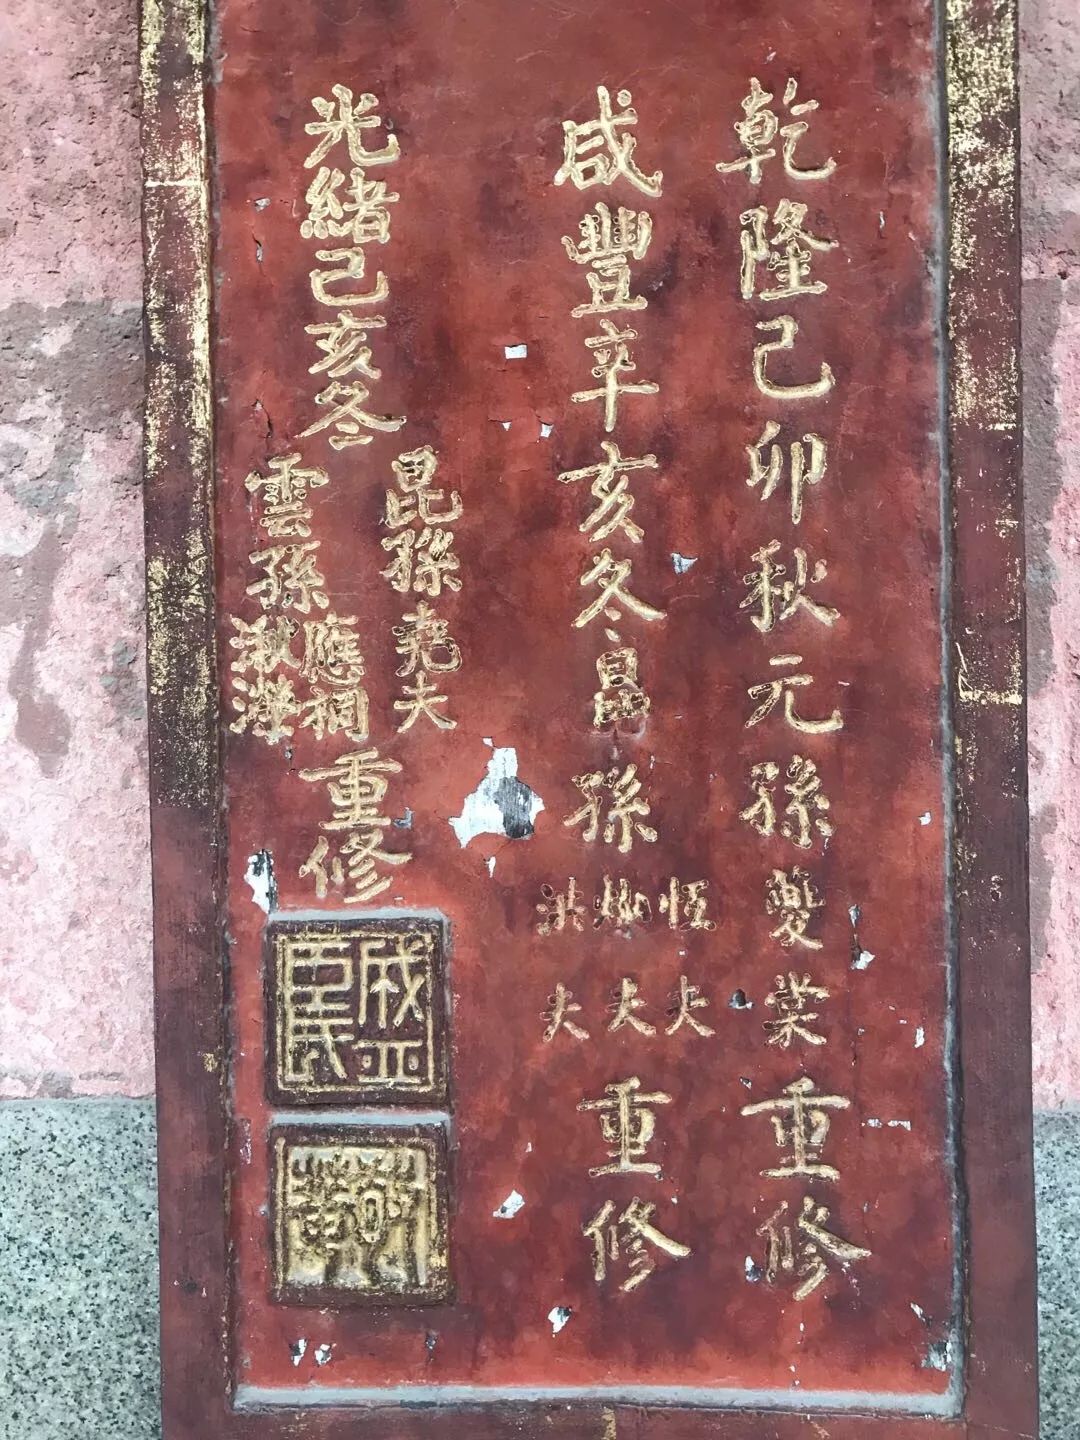 乾隆己卯秋元孫夔棠重修
咸豐辛亥冬晜孫
恆夫
燦夫
洪夫
重修
光緒己亥冬
昆孫堯夫
雲孫
應祠
淑瀅
重修